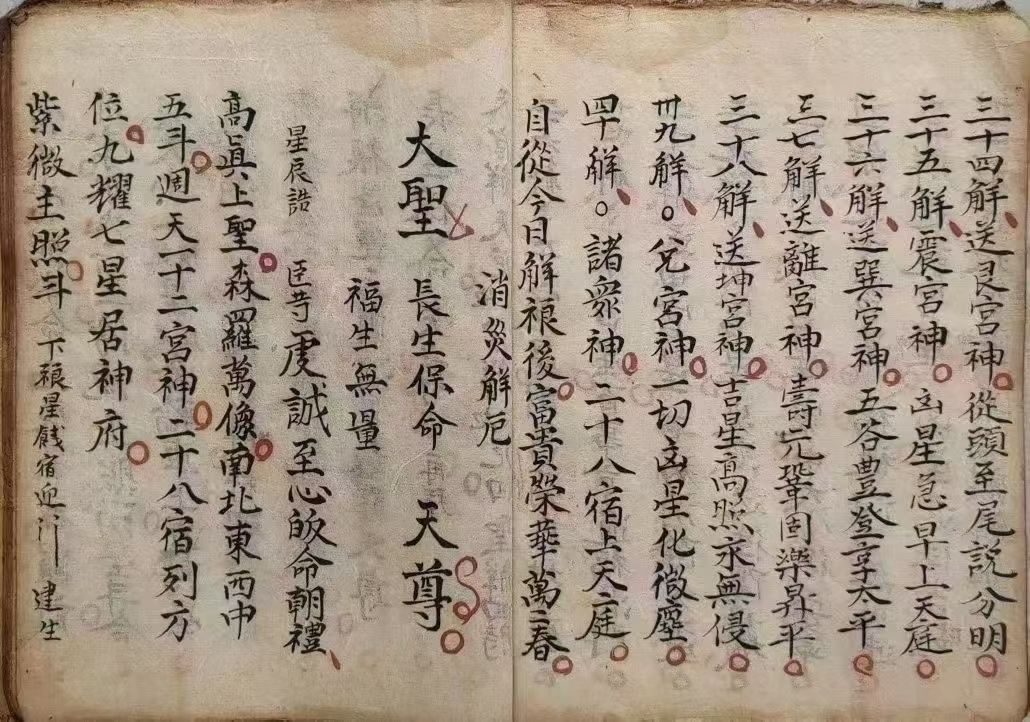 三十四解送艮宮神從頭至尾說分明
三十五解震宮神凶星急早上天庭
三十六解送巽宮神五谷豊登享太平
三七解送離宮神壽元鞏固樂昇平
三十八解送坤宮神吉星高照永無侵
卅九解。兌宮神一切凶星化微塵
四十解。諸眾神二十八宿上天庭
自從今日解禳後富貴榮華萬二春
消災解厄
大聖 長生保命 天尊
福生無量
星辰誥 臣等虔誠至心皈命朝禮
高真上聖森羅萬像南北東西中
五斗週天一十二宮神二十八宿列方
位九耀七星居神府
紫微主照斗 下禳星餞宿迎 建生